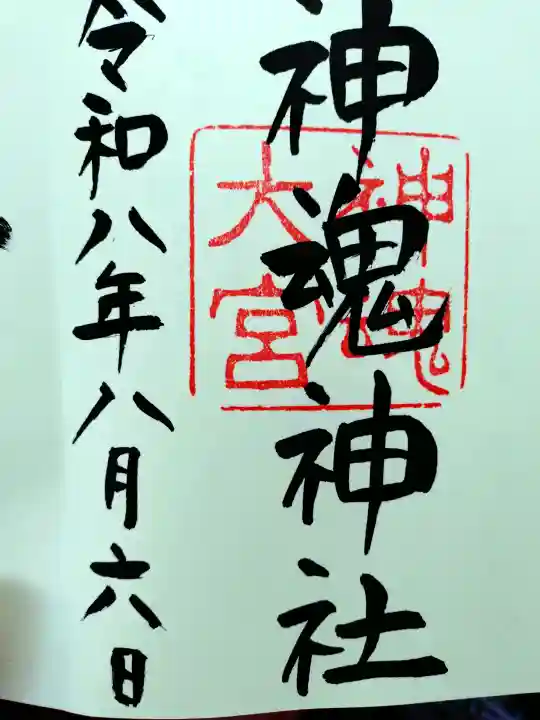 神魂神社
神魂
大宮
令和八年八月六日